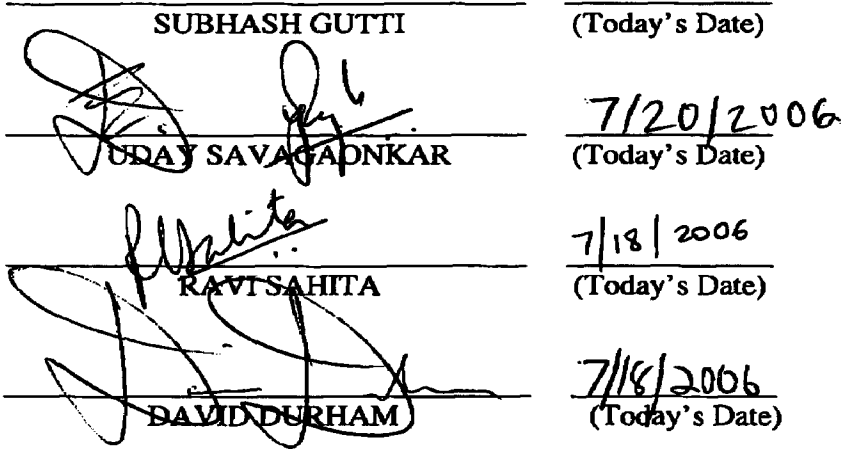 SUBHASH GUTTI (Today's Date)
7/20/2006
UDAY SAVAGAONKAR (Today's Date)
R Sahita 7/18/2006
RAVI SAHITA (Today's Date)
7/18/2006
DAVID DURHAM (Today's Date)